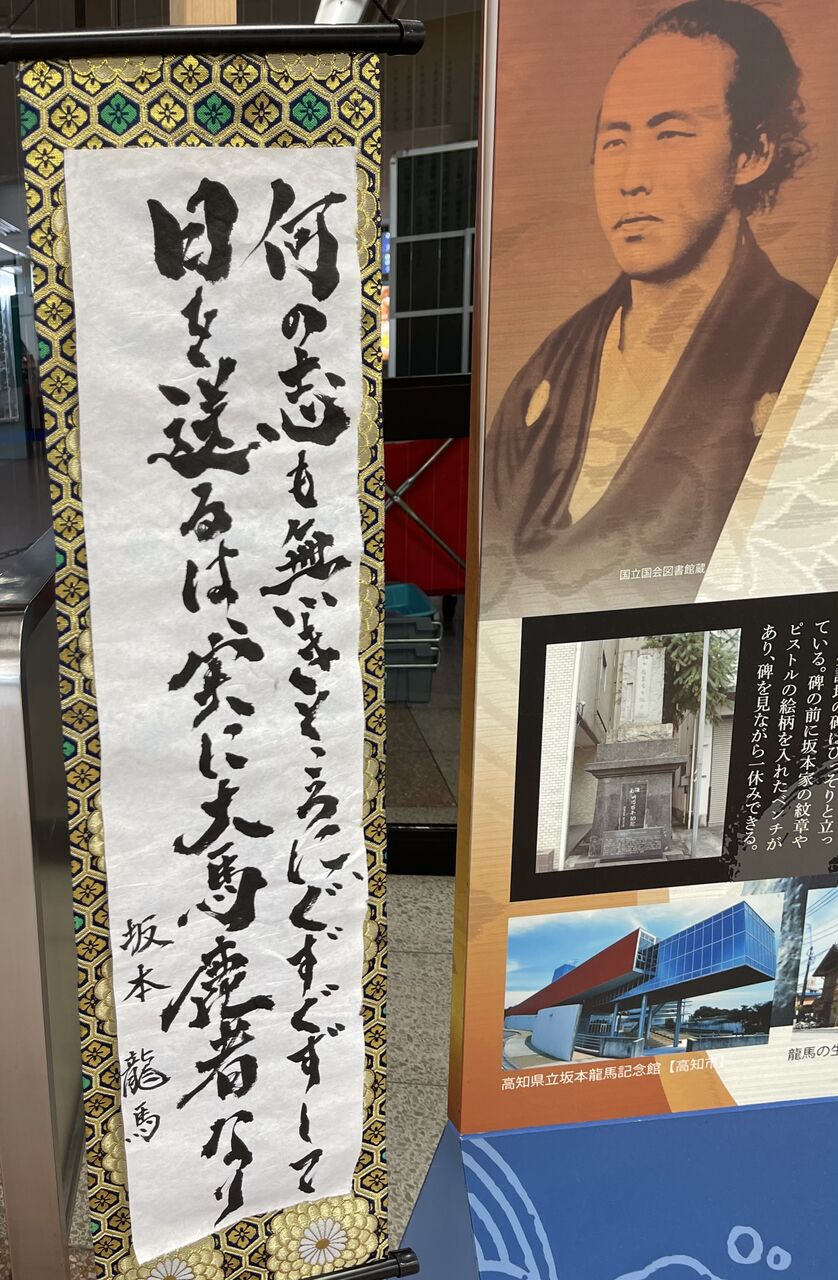 何の志も無きところに、ぐずぐずして
日を送るは、実に大馬鹿者なり
坂本 龍馬
国立国会図書館蔵
の碑はひっそりと立っ
ている。碑の前に坂本家の紋章や
ピストルの絵柄を入れたベンチが
あり、碑を見ながら一休みできる。
高知県立坂本龍馬記念館【高知市】
龍馬の生